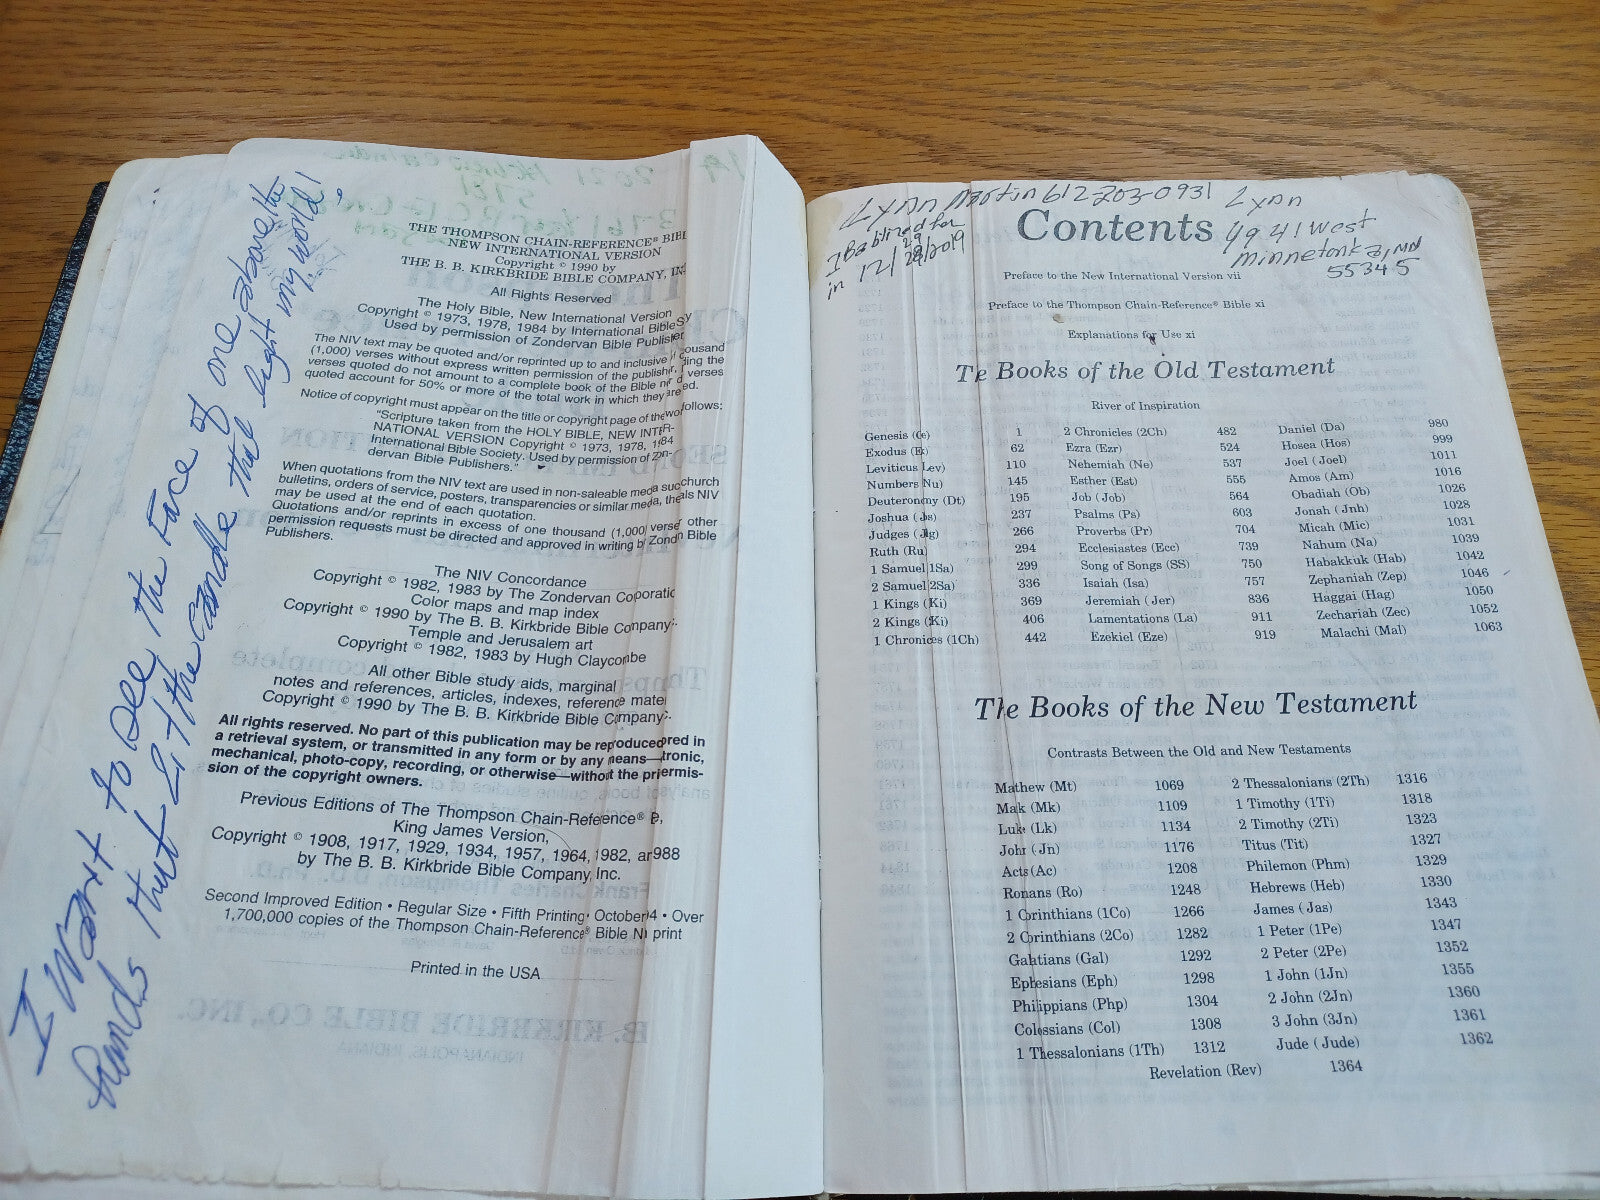 I Want to see the Face of one above the
hands that Lit the candle that light my world!
THE THOMPSON CHAIN-REFERENCE® BIBL
NEW INTERNATIONAL VERSION
Copyright © 1990 by
THE B. B. KIRKBRIDE BIBLE COMPANY, IN
All Rights Reserved
The Holy Bible, New International Version
Copyright © 1973, 1978, 1984 by International Bible S y
Used by permission of Zondervan Bible Publisher
The NIV text may be quoted and/or reprinted up to and inclusive f ousand
(1,000) verses without express written permission of the publisher, ding the
verses quoted do not amount to a complete book of the Bible nor d verses
quoted account for 50% or more of the total work in which they are ed.
Notice of copyright must appear on the title or copyright page of the wo follows:
"Scripture taken from the HOLY BIBLE, NEW INTER-
NATIONAL VERSION Copyright © 1973, 1978, 1984
International Bible Society. Used by permission of Zon-
dervan Bible Publishers."
When quotations from the NIV text are used in non-saleable media suc church
bulletins, orders of service, posters, transparencies or similar media, the als NIV
may be used at the end of each quotation.
Quotations and/or reprints in excess of one thousand (1,000) verse other
permission requests must be directed and approved in writing by Zond n Bible
Publishers.
The NIV Concordance
Copyright © 1982, 1983 by The Zondervan Co poratic
Color maps and map index
Copyright © 1990 by The B. B. Kirkbride Bible Company
Temple and Jerusalem art
Copyright © 1982, 1983 by Hugh Claycombe
All other Bible study aids, marginal
notes and references, articles, indexes, reference mate
Copyright © 1990 by The B. B. Kirkbride Bible Company
All rights reserved. No part of this publication may be reproduced red in
a retrieval system, or transmitted in any form or by any means— tronic,
mechanical, photo-copy, recording, or otherwise—without the pri ermis-
sion of the copyright owners.
Previous Editions of The Thompson Chain-Reference® B,
King James Version,
Copyright © 1908, 1917, 1929, 1934, 1957, 1964, 1982, ar 988
by The B. B. Kirkbride Bible Company, Inc.
Second Improved Edition • Regular Size • Fifth Printing October 4 • Over
1,700,000 copies of the Thompson Chain-Reference® Bible N print
Printed in the USA
Lynn Martin 612-203-0931 Lynn
4941 West
Minnetonka, MN
55345
I Babtized for
29
in 12/28/2019
Contents
Preface to the New International Version vii
Preface to the Thompson Chain-Reference® Bible xi
Explanations for Use xi
T e Books of the Old Testament
River of Inspiration
Genesis (Ge) 1 2 Chronicles (2Ch) 482 Daniel (Da) 980
Exodus (E) 62 Ezra (Ezr) 524 Hosea (Hos) 999
Leviticus Lev) 110 Nehemiah (Ne) 537 Joel (Joel) 1011
Numbers Nu) 145 Esther (Est) 555 Amos (Am) 1016
Deuteronomy (Dt) 195 Job (Job) 564 Obadiah (Ob) 1026
Joshua (Js) 237 Psalms (Ps) 603 Jonah (Jnh) 1028
Judges (Jg) 266 Proverbs (Pr) 704 Micah (Mic) 1031
Ruth (Ru) 294 Ecclesiastes (Ecc) 739 Nahum (Na) 1039
1 Samuel 1Sa) 299 Song of Songs (SS) 750 Habakkuk (Hab) 1042
2 Samuel 2Sa) 336 Isaiah (Isa) 757 Zephaniah (Zep) 1046
1 Kings (Ki) 369 Jeremiah (Jer) 836 Haggai (Hag) 1050
2 Kings (Ki) 406 Lamentations (La) 911 Zechariah (Zec) 1052
1 Chronices (1Ch) 442 Ezekiel (Eze) 919 Malachi (Mal) 1063
T e Books of the New Testament
Contrasts Between the Old and New Testaments
Mathew (Mt) 1069 2 Thessalonians (2Th) 1316
Mak (Mk) 1109 1 Timothy (1Ti) 1318
Luke (Lk) 1134 2 Timothy (2Ti) 1323
John (Jn) 1176 Titus (Tit) 1327
Acts (Ac) 1208 Philemon (Phm) 1329
Romans (Ro) 1248 Hebrews (Heb) 1330
1 Corinthians (1Co) 1266 James (Jas) 1343
2 Corinthians (2Co) 1282 1 Peter (1Pe) 1347
Galatians (Gal) 1292 2 Peter (2Pe) 1352
Ephesians (Eph) 1298 1 John (1Jn) 1355
Philippians (Php) 1304 2 John (2Jn) 1360
Colossians (Col) 1308 3 John (3Jn) 1361
1 Thessalonians (1Th) 1312 Jude (Jude) 1362
Revelation (Rev) 1364